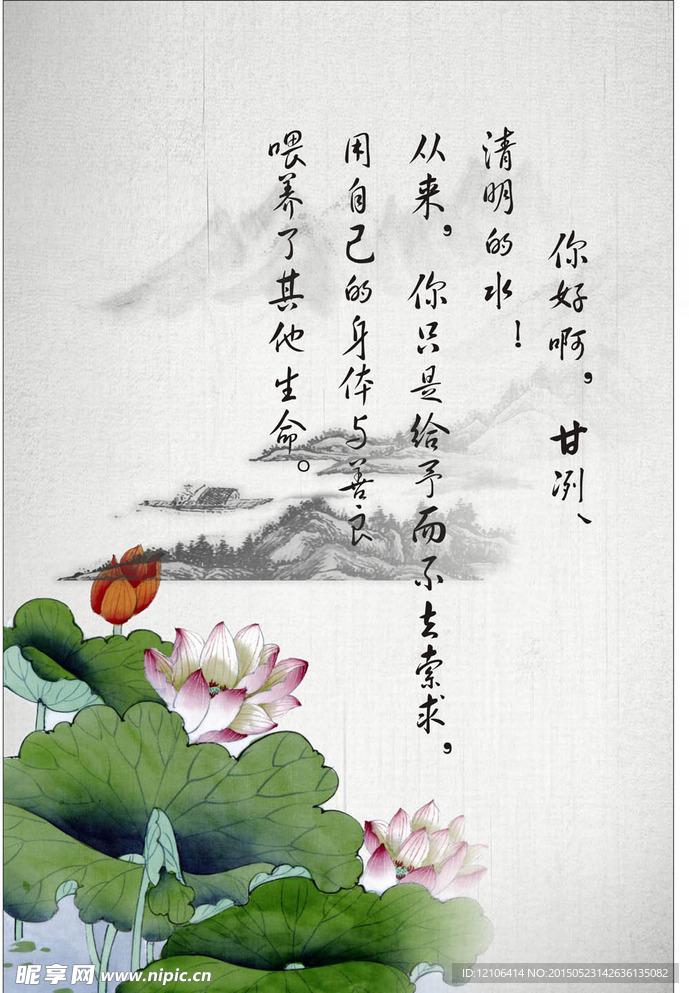 你好啊，甘冽、
清明的水！
从来，你只是给予而不去索求，
用自己的身体与善良
喂养了其他生命。
昵享网 www.nipic.cn
ID:12106414 NO:20150523142636135082